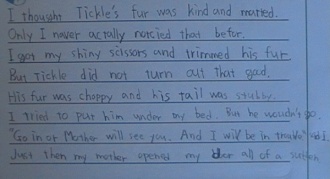 I thought Tickle's fur was kind and matted.
Only I never actally noticed that befor.
I got my shiny scissors and trimmed his fur
But Tickle did not turn out that good.
His fur was choppy and his tail was stubby.
I tried to put him under my bed. But he woudn't go.
"Go in or Mother will see you. And I will be in trouble," said I.
Just then my mother opened my door all of a sudden